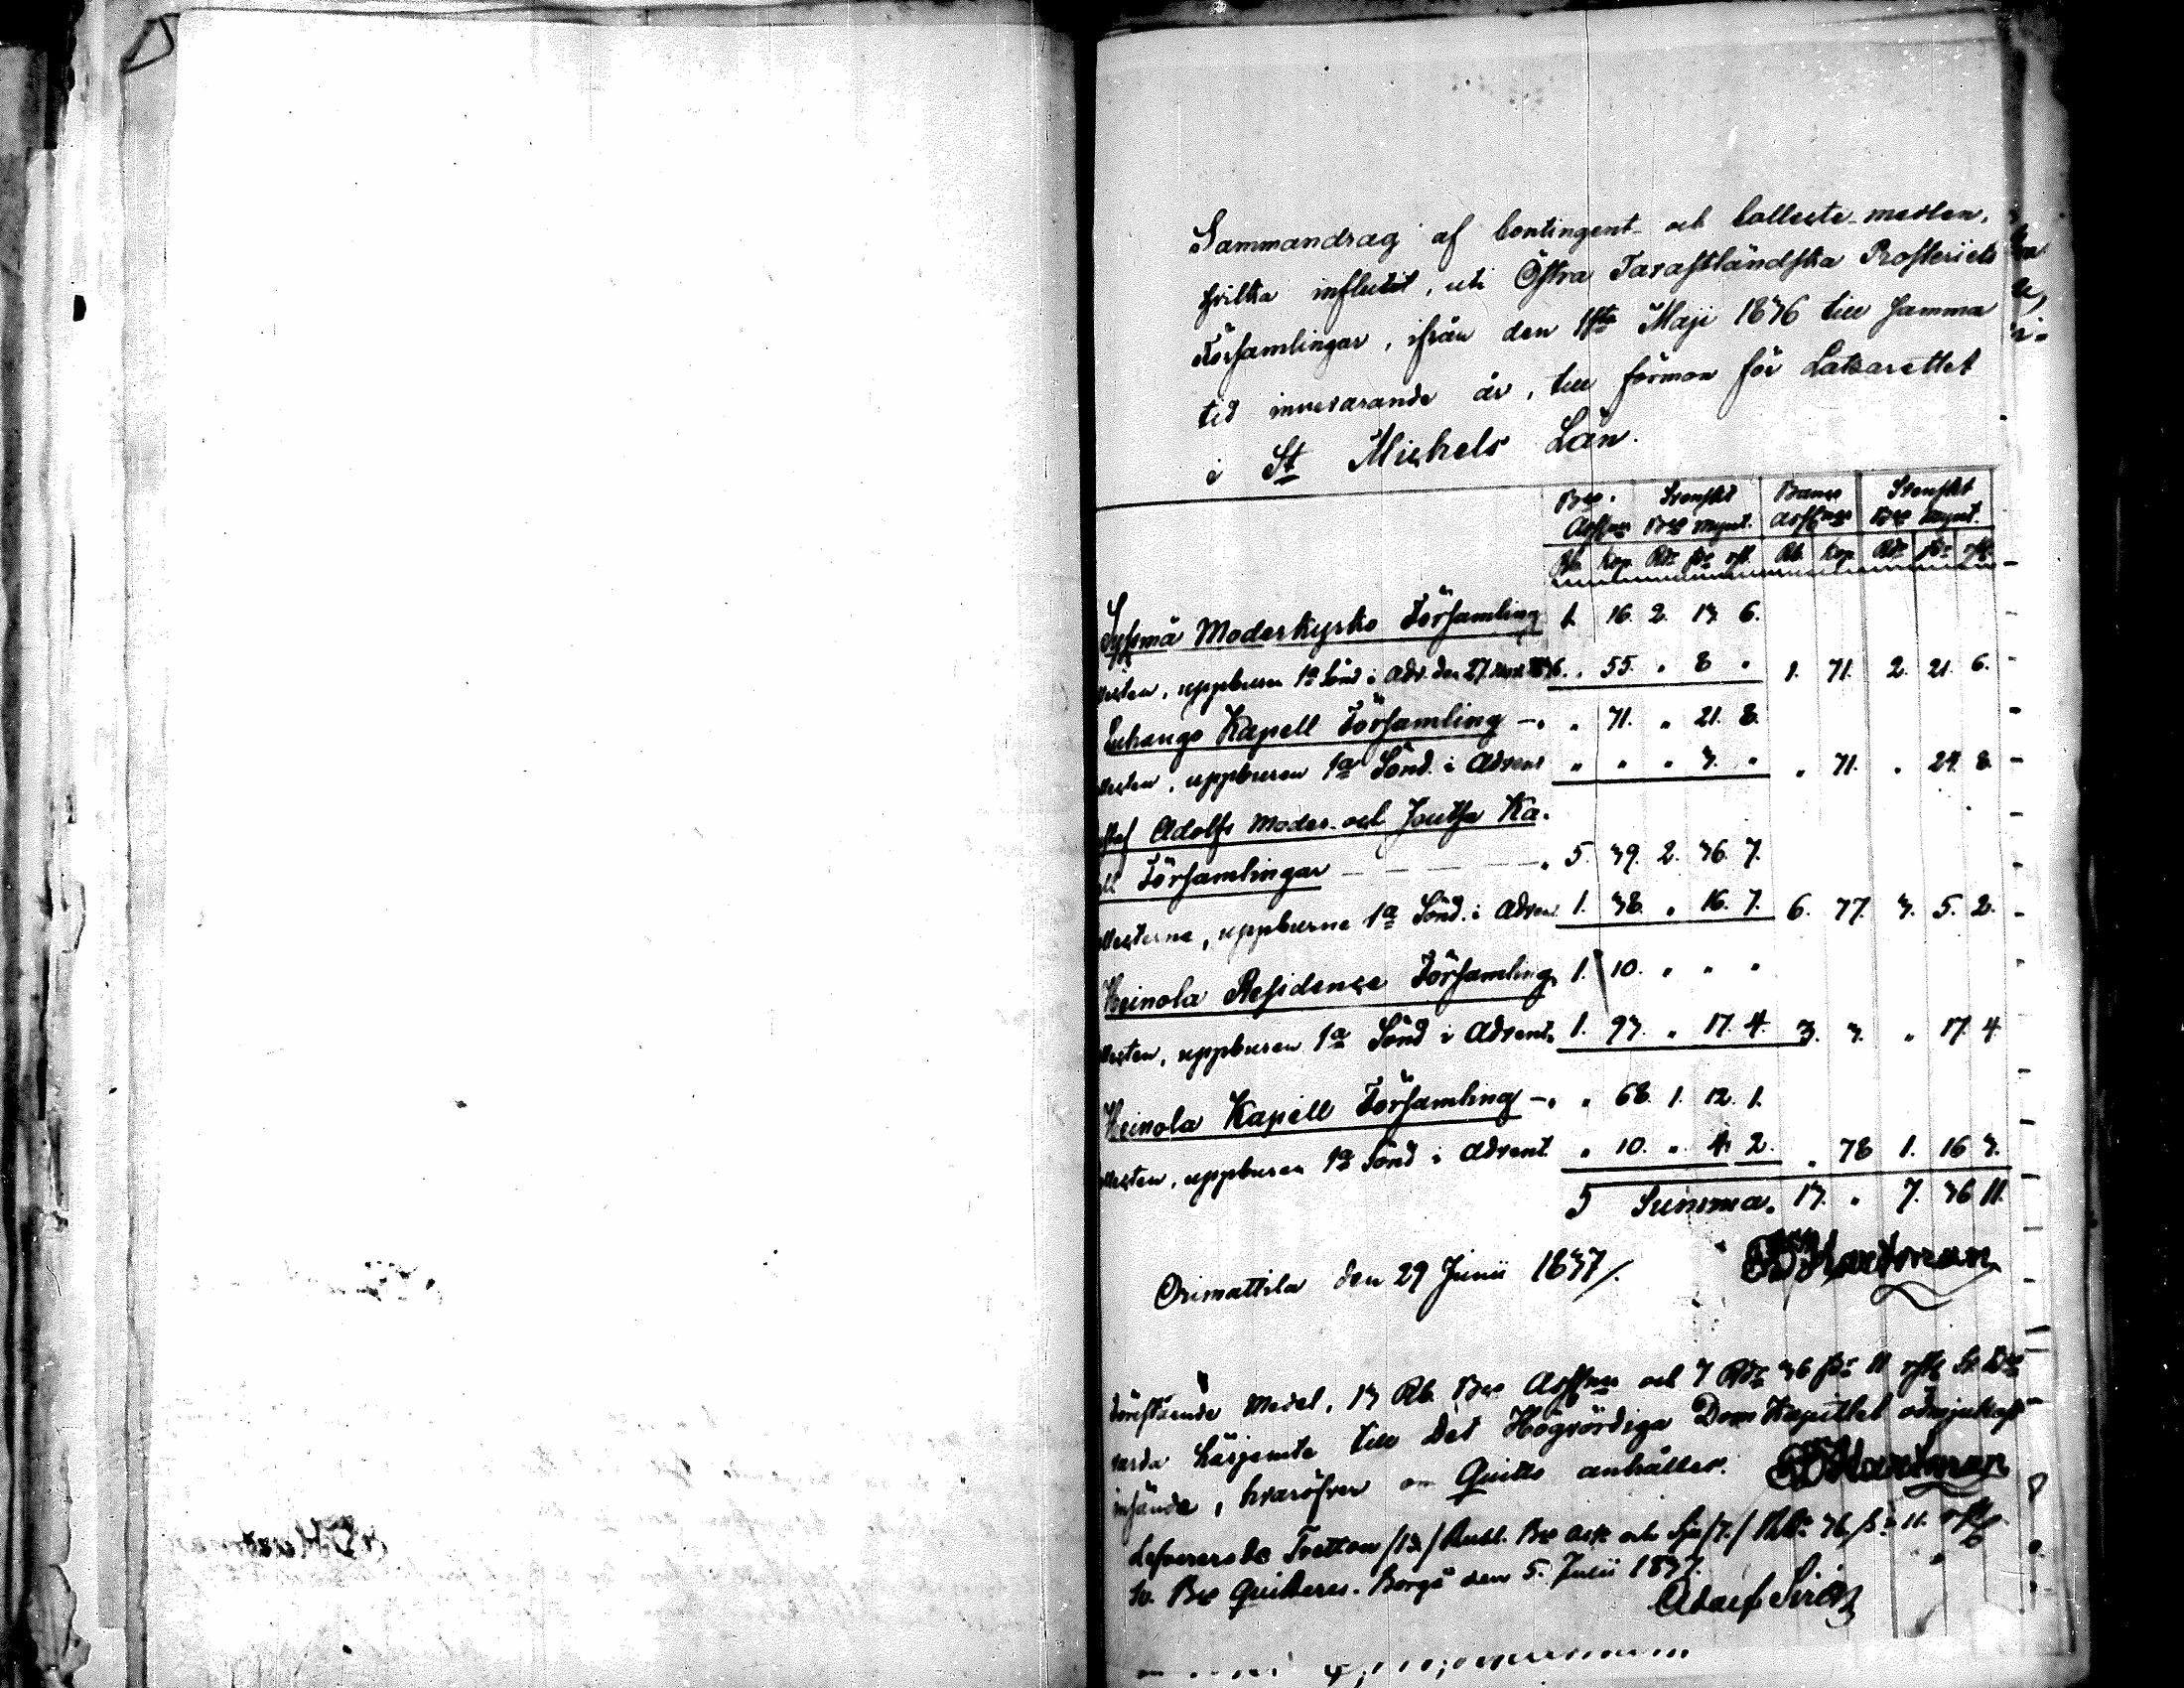 Sammandrag af Contingent- och Collecte-medlen,
hvilka influtit, uti Östra Tavastländska Prosteriets
Församlingar, ifrån den 1sta Maji 1836 till samma
tid innevarande år, till förmon för Lazarettet
i St Michels Län.
Bco Assgner Svenskt Bco mynt. Banco Assgner Svenskt Bco mynt.
Rb. Kop. Rdr sk. rst. Rb. Kop. Rdr sk. rst.
Sysmä Moderkyrko Församling 1. 16. 2. 13. 6.
llecten, uppburen 1a Sönd. i Adv. den 27. Nov. 1836. " 55. " 8 " 1. 71. 2. 21. 6.
Luhango Kapell Församling " 71. " 21. 8.
llecten, uppburen 1a Sönd. i Advent " " " 3. " " 71. " 24. 8.
staf Adolfs Moder- och Joutsa Ka-
ll Församlingar 5. 39. 2. 36. 7.
llecterne, uppburne 1a Sönd. i Advent 1. 38. " 16. 7. 6. 77. 3. 5. 2.
Heinola Residence Församling 1. 10. " " "
llecten, uppburen 1a Sönd i Advent. 1. 93. " 17. 4. 3. 3. " 17. 4.
Heinola Kapell Församling " 68. 1. 12. 1.
llecten, uppburen 1a Sönd i Advent " 10. " 4. 2. " 78 1. 16 3.
Summa. 13. " 7. 36 11.
Orimattila den 29 Junii 1837/.
Hartman
Föreståände Medel, 13 Rb. Bco Assgner och 7 Rdr 36 sk. 11 rst. Sv. Bco
varda härjemte till Det Högvördiga Dom Kapitlet ödmjukast
insände, hvaröfver om Quitto anhålles. Hartman
Lefvererade Tretton /13./ Rubl. Bco Ass. och Sju /7./ Rdr 36 sk. 11. rst.
Sv. Bco Quitteras. Borgå den 5. Julii 1837.
Adolf Sirén